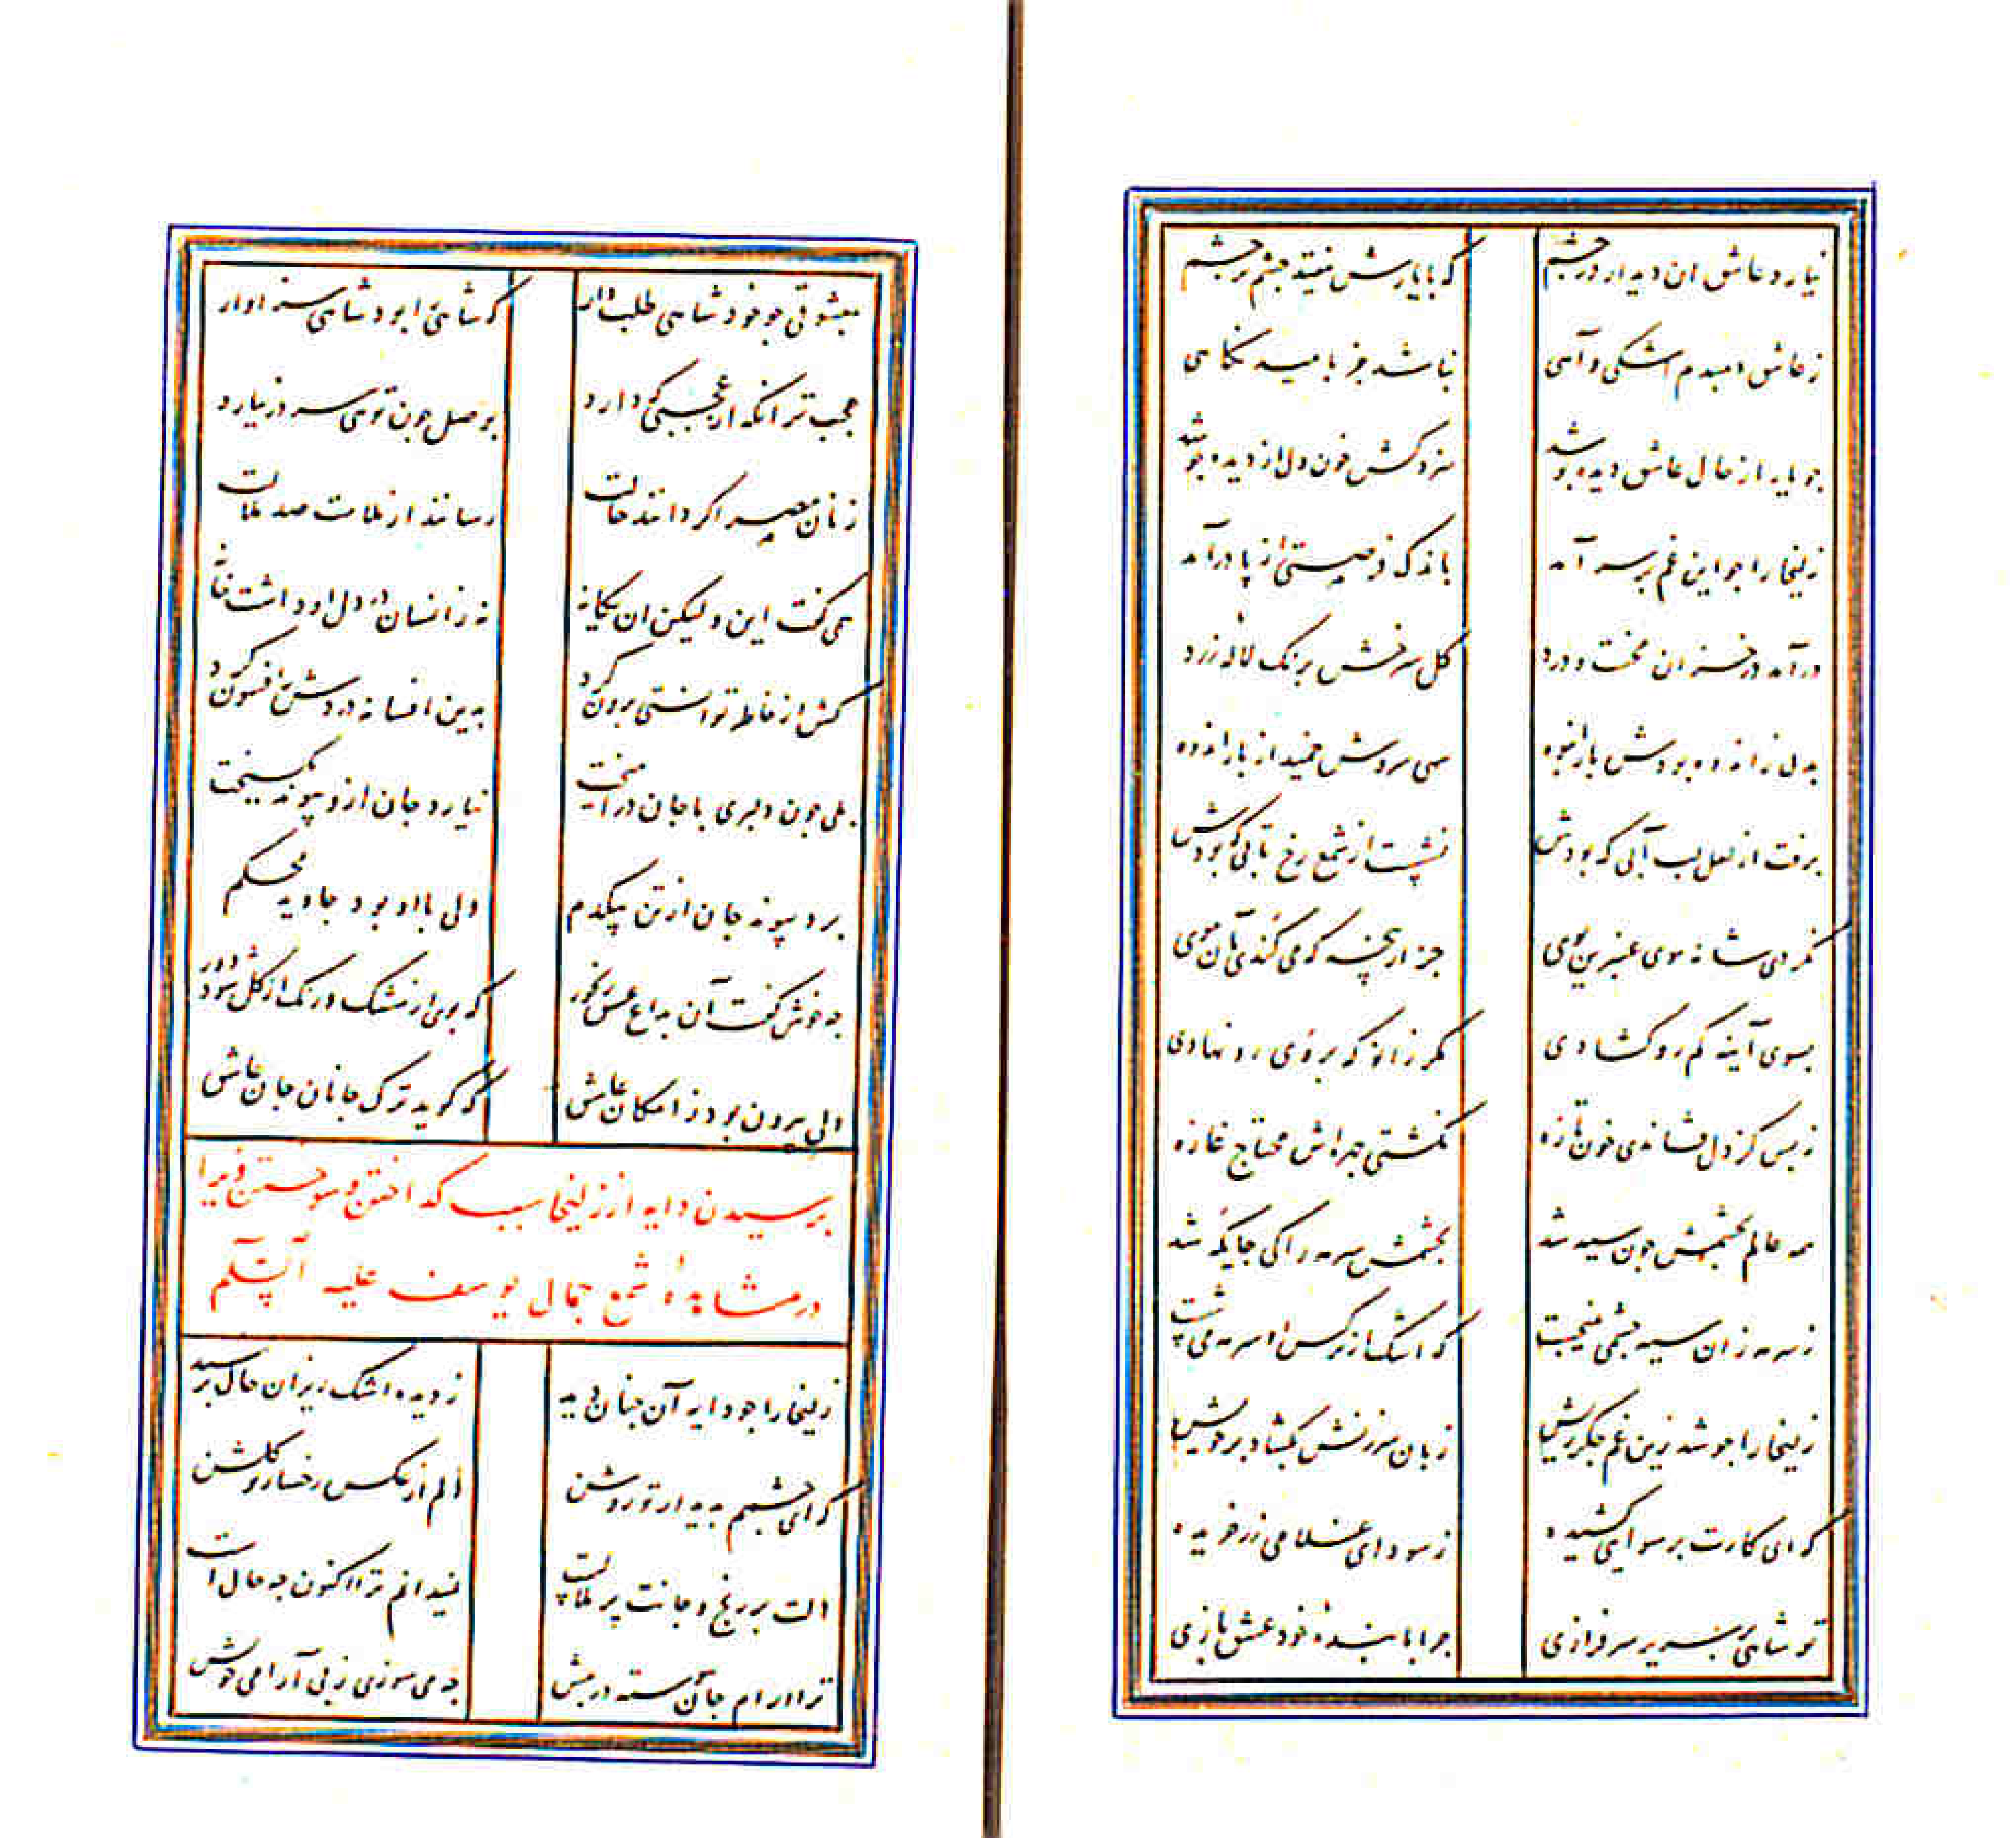 نیارد عاشق ان دیدار در چشم
که با یارش نیفتد چشم بر چشم
ز عاشق دمبدم اشکی و آهی
نباشد جز بامید نکاهی
جو یار از حال عاشق دیده پوشد
سزد کش خون دل از دیده جوشد
زلیخا را جو این غم بر سر آمد
باندک فرصتی از پا درآمد
درآمد در خزان محنت و درد
کل سرخش برنک لاله زرد
بدل ز اندوه بودش بار انبوه
سهی سروش خمید از بار اندوه
برفت از لعل لب آبی که بودش
نشست از شمع رخ تابی که بودش
نکردی شانه موی عنبرین بوی
جز از پنجه که می کندی بان موی
بسوی آینه کم رو کشادی
مکر زانو که بر وی رو نهادی
ز بس کز دل فشاندی خون تازه
نکشتی چهره اش محتاج غازه
همه عالم بچشمش جون سیه شد
بچشمش سرمه را کی جایکه شد
ز سرمه زان سیه چشمی نمیجست
که اشک از نرکس او سرمه می شست
زلیخا را جو شد زین غم جکر ریش
زبان سرزنش بکشاد بر خویش
که ای کارت برسوایی کشیده
ز سودای غلامی زر خریده
تو شاهی بر سریر سرفرازی
جرا با بندهٔ خود عشق بازی
بمعشوقی جو خود شاهی طلب دار
که شاهی را بود شاهی سزاوار
عجب تر آنکه از عجبی که دارد
بوصل جون تویی سر در نیارد
زنان مصر اکر دانند حالت
رسانند از ملامت صد ملالت
همی کفت این و لیکن ان یکانه
نه زانسان در دل او داشت خانه
کش از خاطر توانستی برون کرد
بدین افسانه دردش را فسون کرد
بلی جون دلبری با جان درآمیخت
نیارد جان ازو پیوند بکسیخت
برد پیوند جان از تن بیکدم
ولی با او بود جاوید محکم
جه خوش کفت آن بداغ عشق رنجور
که بوی از مشک و رنک از کل شود دور
ولی بیرون بود ز امکان عاشق
که کوید ترک جانان جان عاشق
پرسیدن دایه از زلیخا سبب کداختن و سوختن ویرا
در مشاهدهٔ شمع جمال یوسف علیه السلام
زلیخا را جو دایه آن جنان دید
ز دیده اشک ریزان حال پرسید
که ای چشمم بدیدار تو روشن
دلم از عکس رخسار تو کلشن
دلت پر رنج و جانت پر ملالست
نمیدانم ترا اکنون جه حالست
ترا آرام جان پیوسته در پیش
جه می سوزی ز بی آرامی خویش